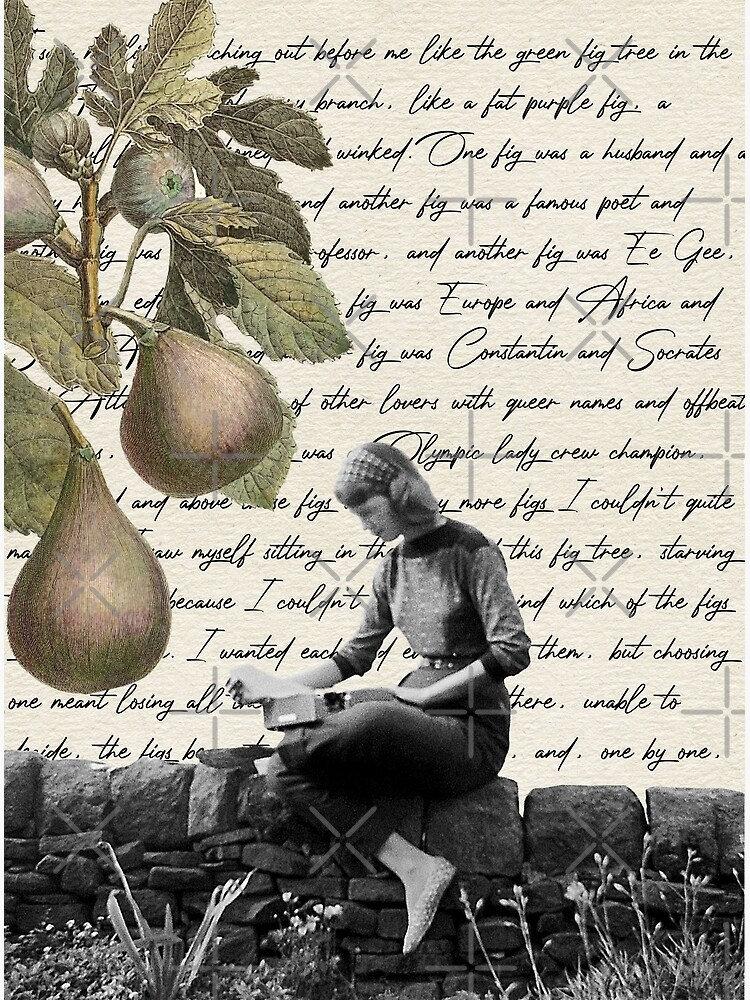 out before me like the green fig tree in the
branch, like a fat purple fig, a
winked. One fig was a husband and a
and another fig was a famous poet and
fig was and another fig was Ee Gee,
fig was Europe and Africa and
fig was Constantin and Socrates
of other lovers with queer names and offbeat
was Olympic lady crew champion,
and above figs more figs I couldn't quite
myself sitting in this fig tree, starving
because I couldn't which of the figs
I wanted each them, but choosing
one meant losing all unable to
the figs and, one by one,